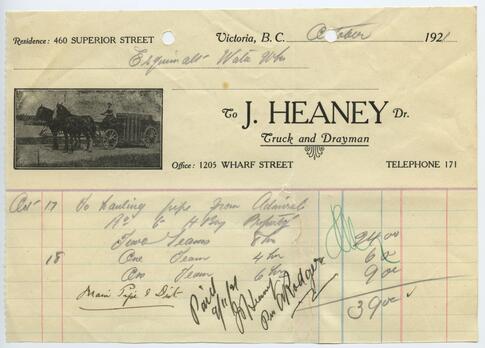 Residence: 460 SUPERIOR STREET
Victoria, B. C. October 1921
Esquimalt Water Wks
To J. HEANEY Dr.
Truck and Drayman
Office: 1205 WHARF STREET
TELEPHONE 171
Oct 17 To Hauling pipe from Admirals
Rd to H Bay Property
Two Teams 8 hrs 24 00
18 One Team 4 hr 6 00
One Team 6 hrs 9 00
39 00
Main Pipe & Dist
Paid
9/11/21
J Heaney
Per E Rodger